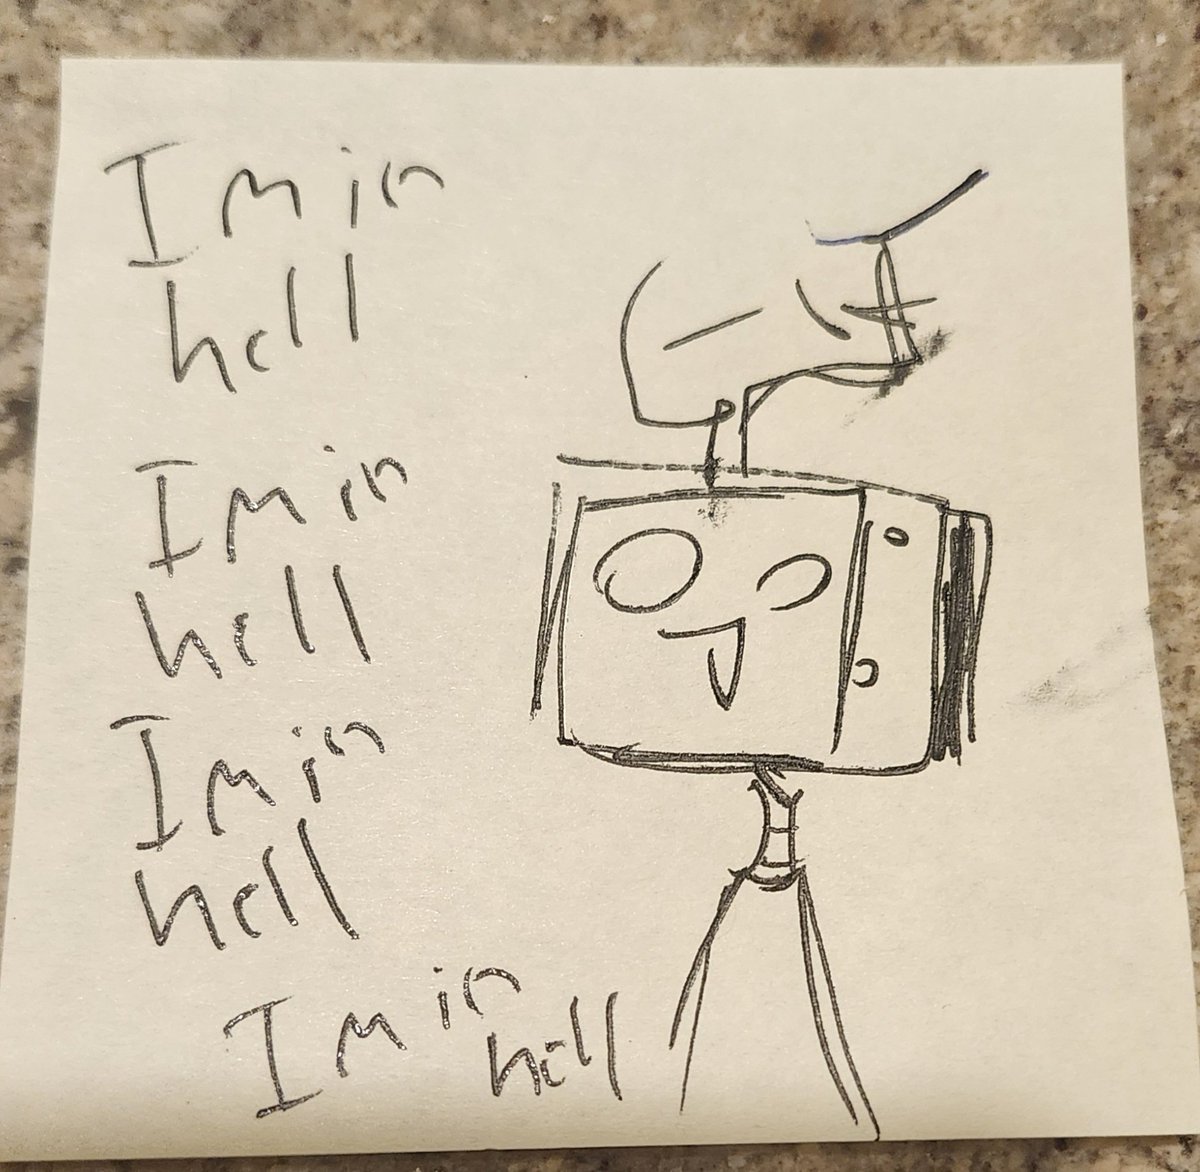 Im in
hell
Im in
hell
Im in
hell
Im in
hell